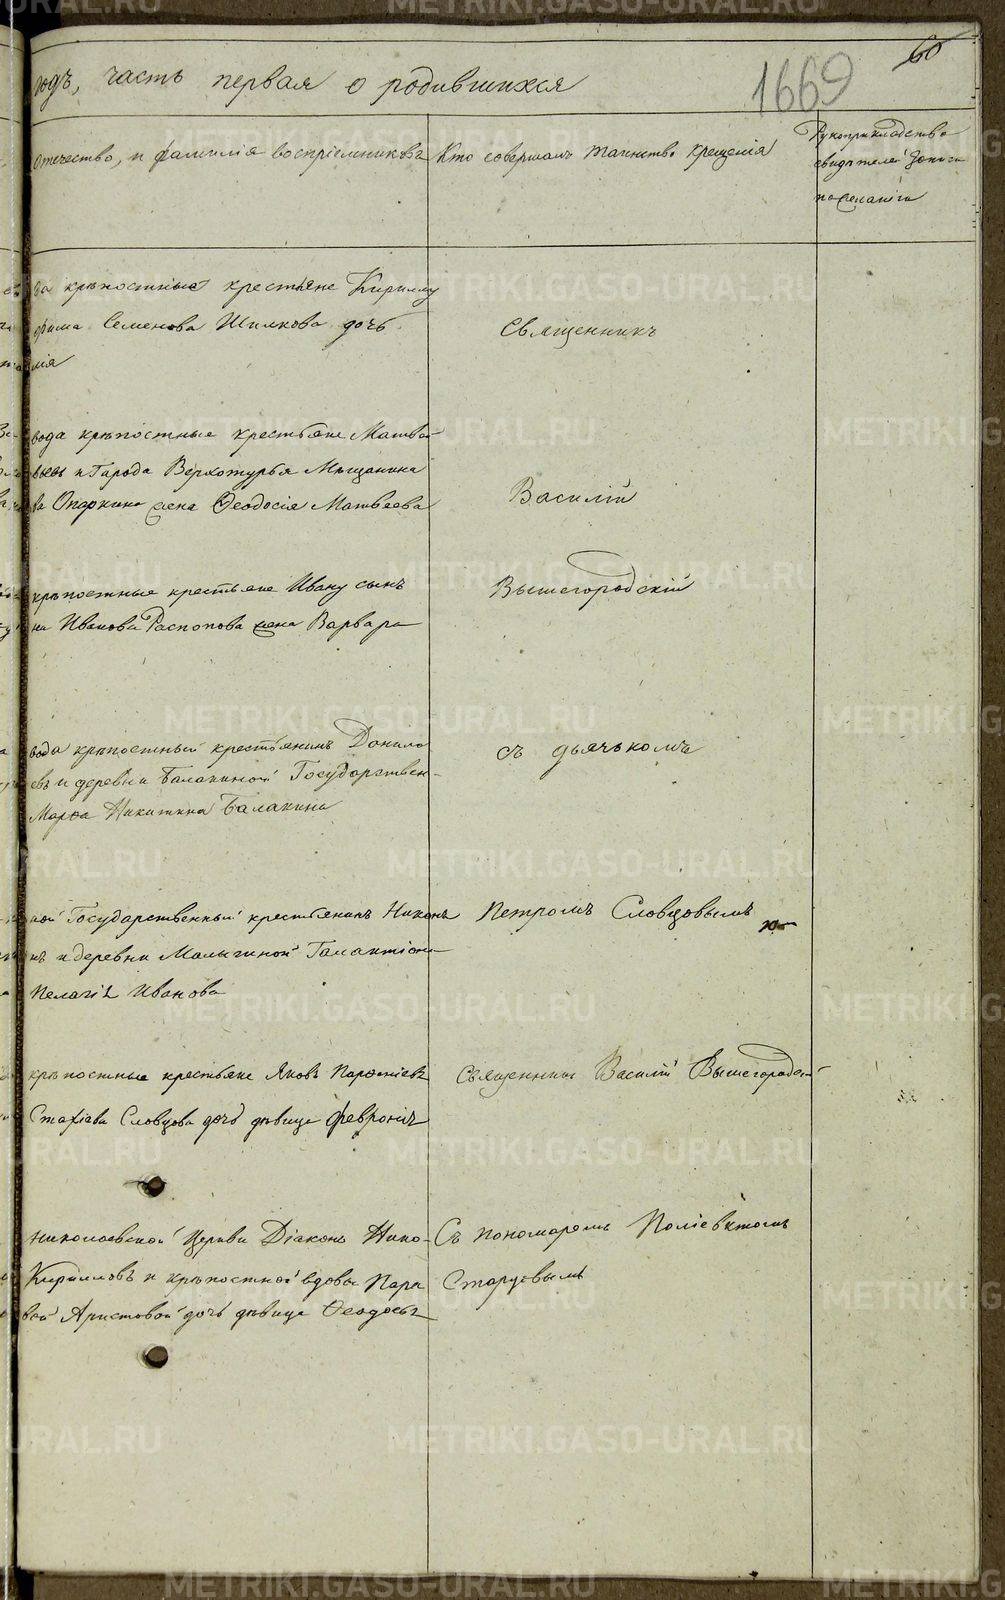 60
1669
годъ, часть первая о родившихся
отечество, и фамилія воспріемниковъ
Кто совершалъ таинство крещенія
Рукоприкладство
свидѣтелей записи
по желанію
ва крѣпостные крестьяне Кириллу
фима Семенова Шилкова дочь
лія
Священникъ
вода крѣпостные крестьяне Матвѣй
вьевъ и Города Верхотурья Мѣщанина
ва Опаркина жена Ѳеодосія Матвѣева
Василій
крѣпостные крестьяне Ивану сынъ
на Иванова Распопова жена Варвара
Вышегородскій
вода крѣпостный крестьянинъ Данило
евъ и деревни Балакиной Государствен-
Марѳа Никитина Балакина
съ дьячькомъ
ной Государственный крестьянинъ Никонъ
нъ и деревни Малыгиной Галактіона
Пелагія Иванова
Петромъ Словцовымъ
крѣпостные крестьяне Яковъ Парѳеніевъ
Стахіева Словцова дочь дѣвица Февронія
Священникъ Василій Вышегородскій
Николаевской Церкви Діаконъ Нико-
Кирилловъ и крѣпостной вдовы Пара
вой Аристовой дочь дѣвица Ѳеодосья
Съ пономаремъ Поліевктомъ
Старцовымъ
METRIKI.GASO-URAL.RU